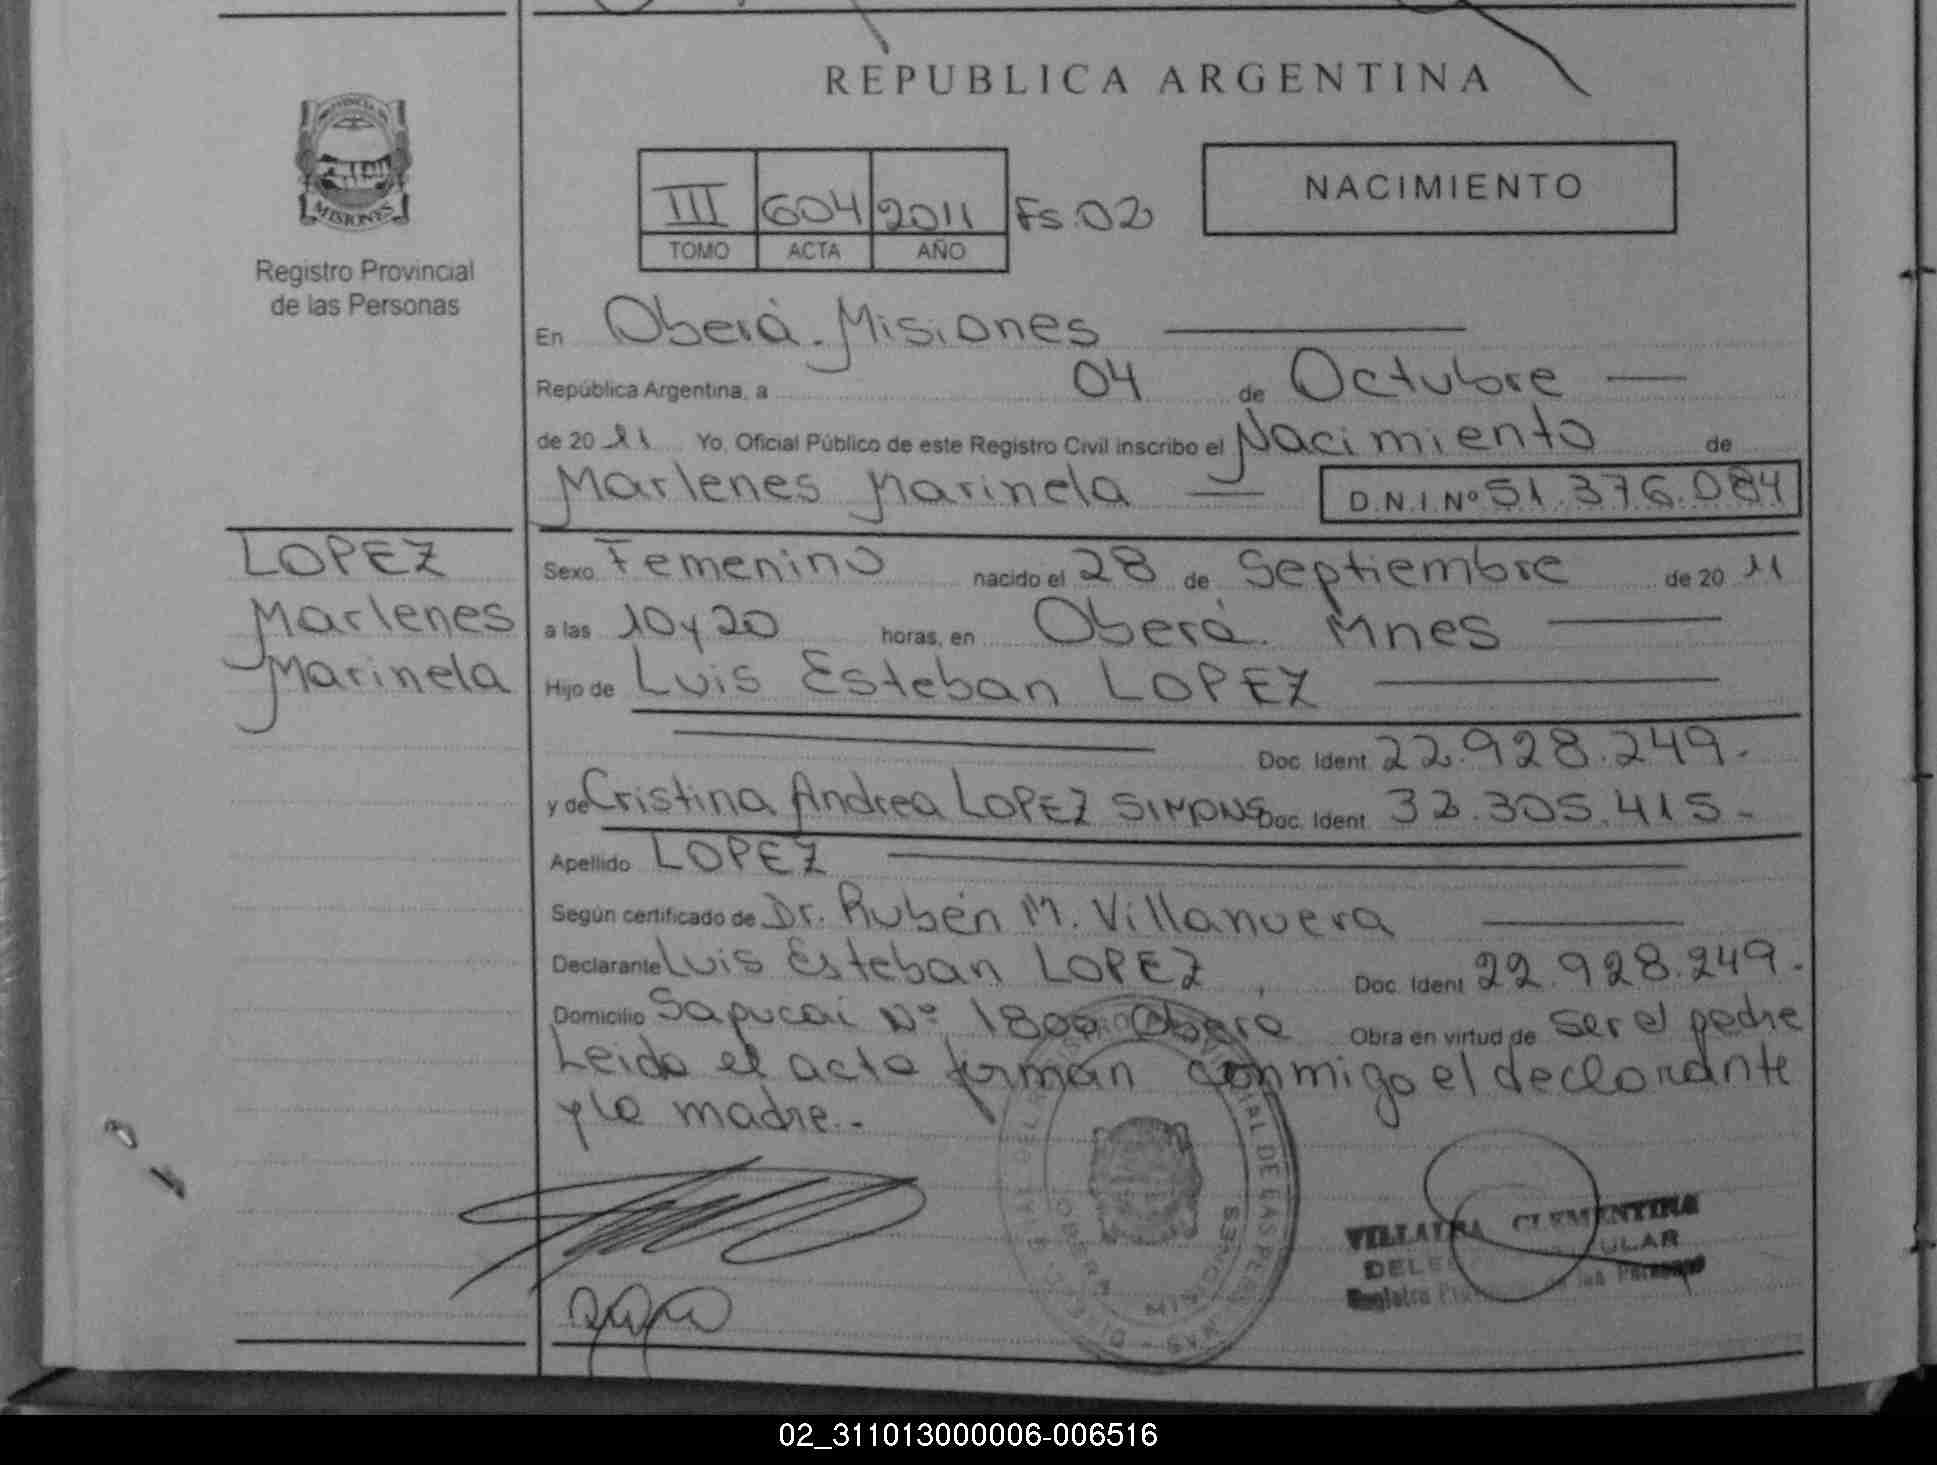 REPUBLICA ARGENTINA
PROVINCIA DE
MISIONES
Registro Provincial
de las Personas
III 604 2011 Fs. 02
TOMO ACTA AÑO
NACIMIENTO
En Oberá. Misiones
República Argentina, a 04 de Octubre
de 20 11 Yo, Oficial Público de este Registro Civil inscribo el Nacimiento de
Marlenes Marinela D.N.I. Nº 51.376.084
LOPEZ
Marlenes
Marinela
Sexo Femenino nacido el 28 de Septiembre de 20 11
a las 10 y 20 horas, en Oberá. Mnes
Hijo de Luis Esteban LOPEZ
Doc. Ident 22.928.249.-
y de Cristina Andrea LOPEZ SIMONS Doc. Ident 32.305.415.-
Apellido LOPEZ
Según certificado de Dr. Rubén M. Villanueva
Declarante Luis Esteban LOPEZ, Doc. Ident 22.928.249.-
Domicilio Sapucai Nº 1800 Obera Obra en virtud de ser el padre
Leida el acta firman conmigo el declarante
y la madre.-
OBERA MISIONES
VILLALBA CLEMENTINA
Registro de las Personas
02_311013000006-006516